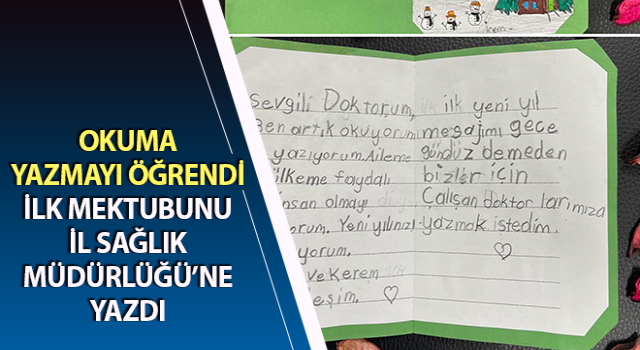 OKUMA
YAZMAYI ÖĞRENDİ
İLK MEKTUBUNU
İL SAĞLIK
MÜDÜRLÜĞÜ’NE
YAZDI
Sevgili Doktorum,
Ben artık okuyorum
yazıyorum. Aileme
ülkeme faydalı
insan olmayı
orum. Yeni yılınızı
yorum.
ve Kerem
eşim.
ilk yeni yıl
mesajımı gece
gündüz demeden
bizler için
Çalışan doktorlarımıza
yazmak istedim.